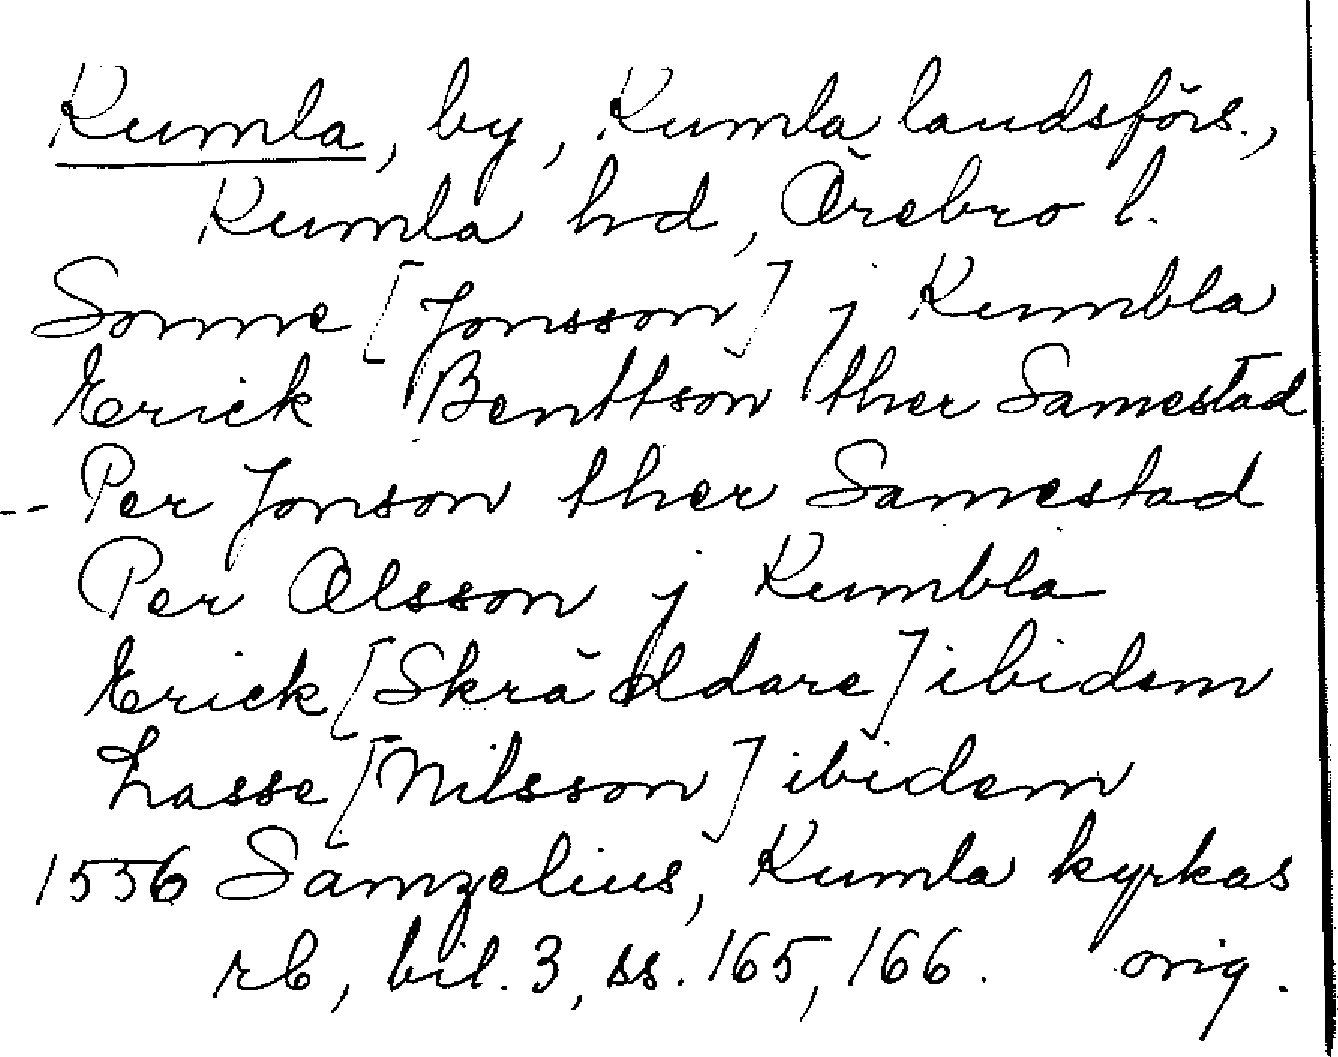 Kumla, by, Kumla landsförs.,
Kumla hd, Örebro l.
Sonne [Jonsson] j Kumbla
Erick Benttson ther Samestad
-- Per Jonson ther Samestad
Per Olsson j Kumbla
Erick [Skräddare] ibidem
Lasse [Nilsson] ibidem
1556 Samzelius, Kumla kyrkas
rb, bil. 3, ss. 165, 166. orig.